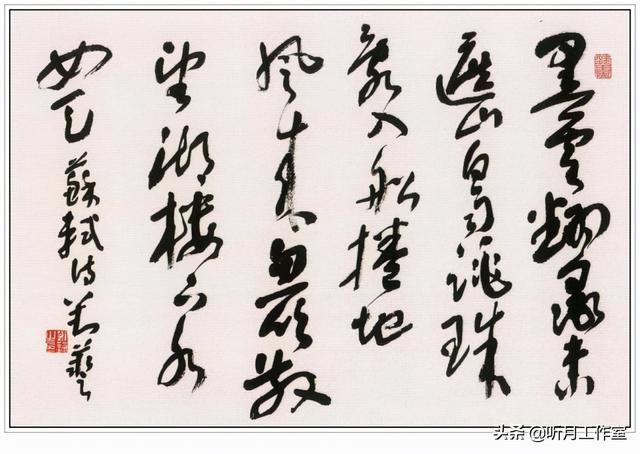 黑雲翻墨未
遮山白雨跳珠
亂入船捲地
風来忽吹散
望湖樓下水
如天 蘇軾詩 劉藝
头条 @听月工作室